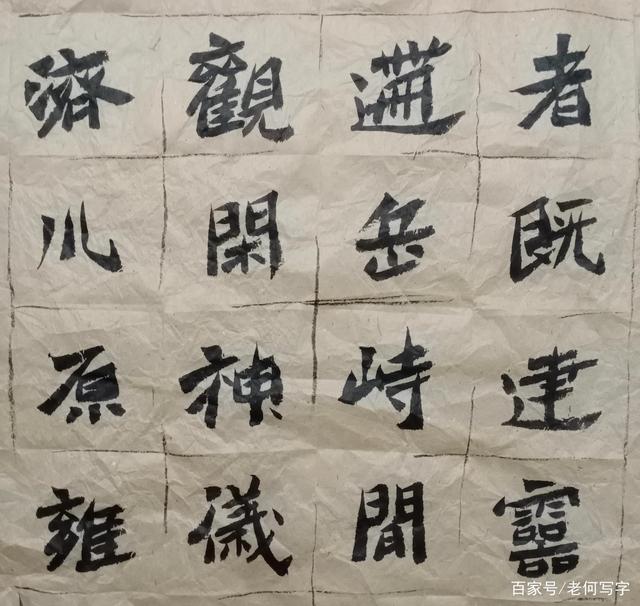 者既建靈
岳峙間
觀閑神儀
濟川原雍
百家号/老何写字